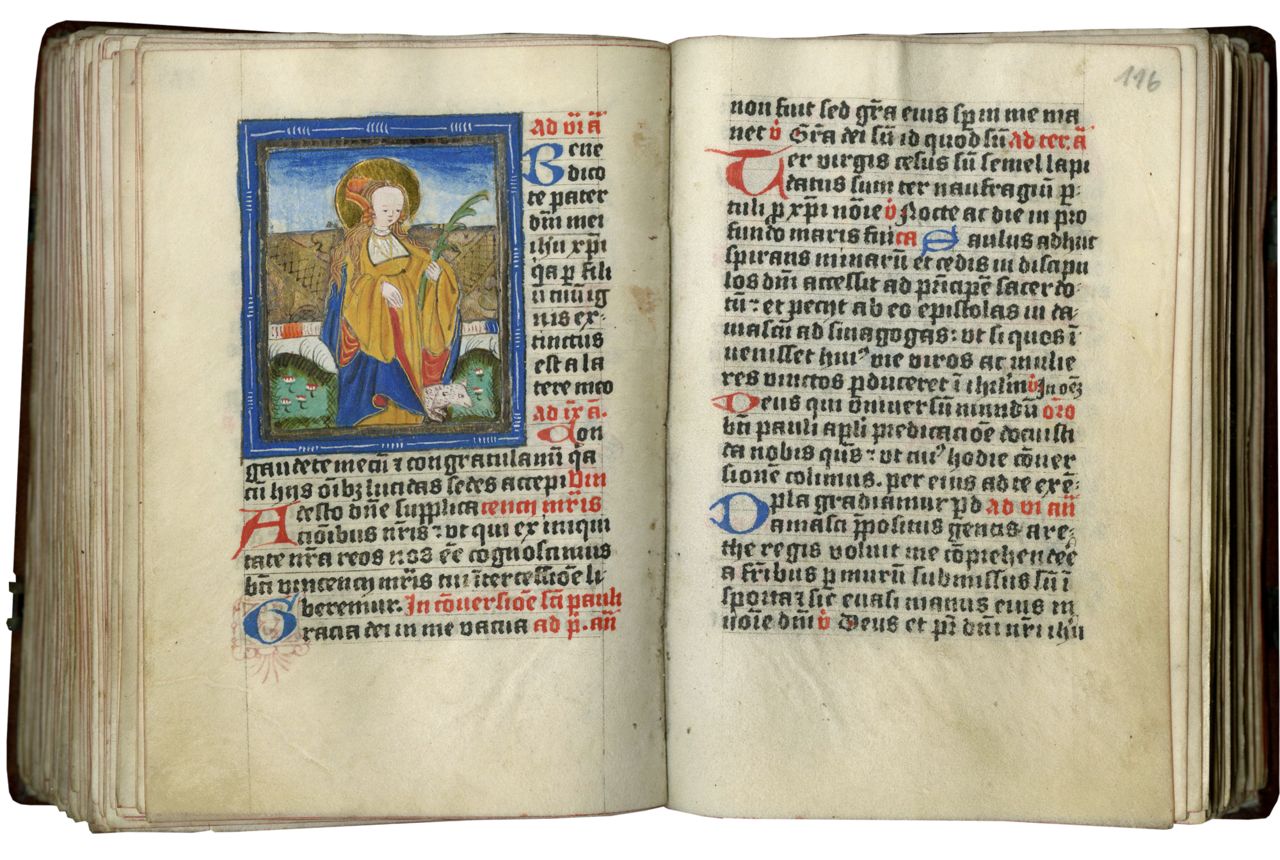 ad vi a̅
Bene
dico
te pater
dn̅i mei
ihu xp̅i
q̅a p̅ fili
u̅ tuu̅ ig
nis ex-
tinctus
est a la
tere meo
ad ix a̅.
Con
gaudete mecu̅ ⁊ congratulami̅ q̅a
cu̅ hijs o̅ibꝫ lucidas sedes accepi Vin
Adesto dn̅e supplica cencij mr̅is
cio̅ibus nr̅is ⁊ vt qui ex iniqui
tate nr̅a reos nos e̅e cognoscimus
bt̅i vincencij mr̅is tui i̅tercessio̅e li
beremur. In co̅uersio̅e sc̅i pauli
Gracia dei in me vacua ad p̅. an̅
116
non fuit sed gr̅a eius sp̅ in me ma
net v̉ Gr̅a dei su̅ id quod su̅ ad ter. a̅
Ter virgis cesus su̅ semel lapi
datus sum ter naufragiu̅ p̲
tuli p̲ xp̅i no̅ie v̉ Nocte ac die in pro
fundo maris fui ca Saulus adhuc
spirans minaru̅ et cedis in discipu
los dn̅i accessit ad pri̅cipe̅ sacerdo-
tu̅: et pecijt ab eo epistolas in da-
mascu̅ ad sinagogas: vt si quos i̅
uenisset hui᷒ vie viros ac mulie
res vinctos p̲duceret i̅ ihrlm̅ v̉ In oe̅ꝫ
Deus qui vniuersu̅ mundu̅ or̅o
bt̅i pauli apl̅i predicacio̅e docuisti
da nobis qu̅s: vt cui᷒ hodie co̅uer
sione̅ colimus. per eius ad te exe̅-
pla gradiamur p̲ d ad vi an̅
Damasci p̅positus gentis are-
the regis voluit me co̅prehende̅
a fr̅ibus p̲ muru̅ submissus su̅ i̅
sporta ⁊ sic euasi manus eius in
no̅ie dn̅i v̉ Deus et pr̅ dn̅i nr̅i ihu